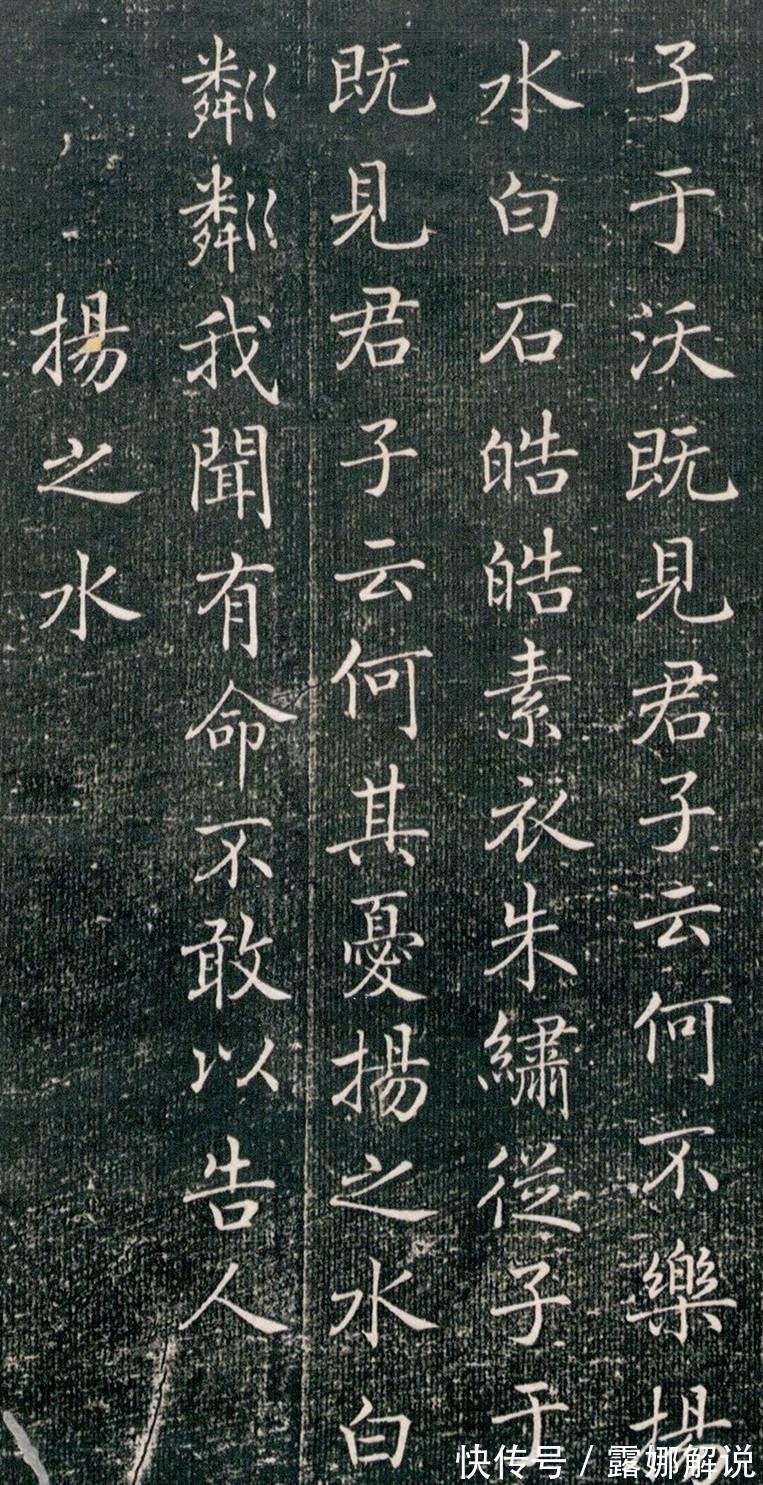 子于沃既見君子云何不樂揚
水白石皓皓素衣朱繡從子于
既見君子云何其憂揚之水白
粼粼我聞有命不敢以告人
揚之水
快传号 / 露娜解说